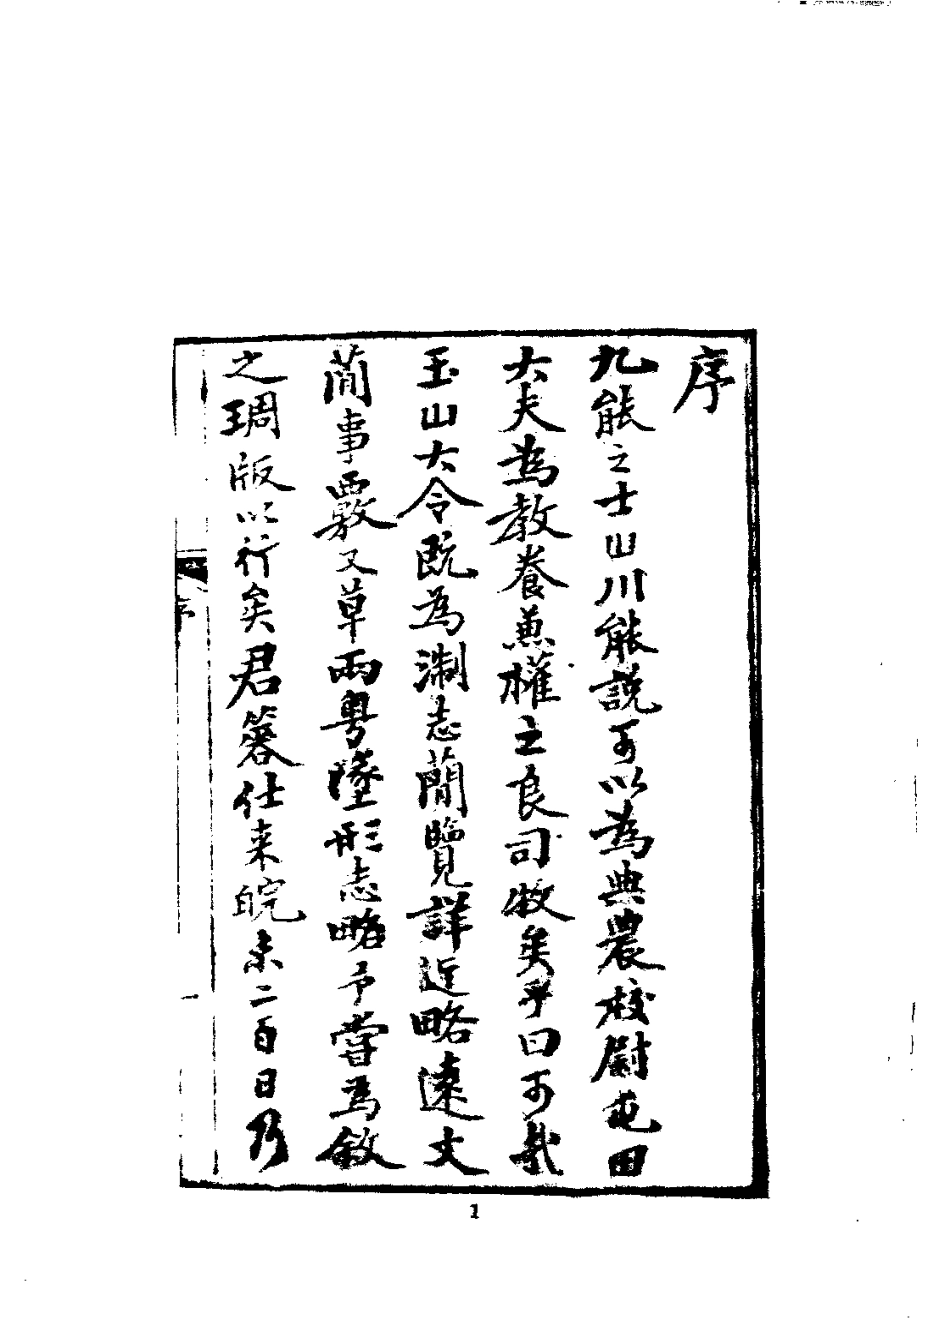 序
九能之士山川能說可以為典農校尉屯田
大夫為教養兼權之良司牧矣乎曰可哉
玉山大令既為淛志簡覽詳近略遠文
簡事覈又草兩粤墬形志略予嘗為敘
之琱版以行矣君筮仕来皖未二百日乃
序
一
1